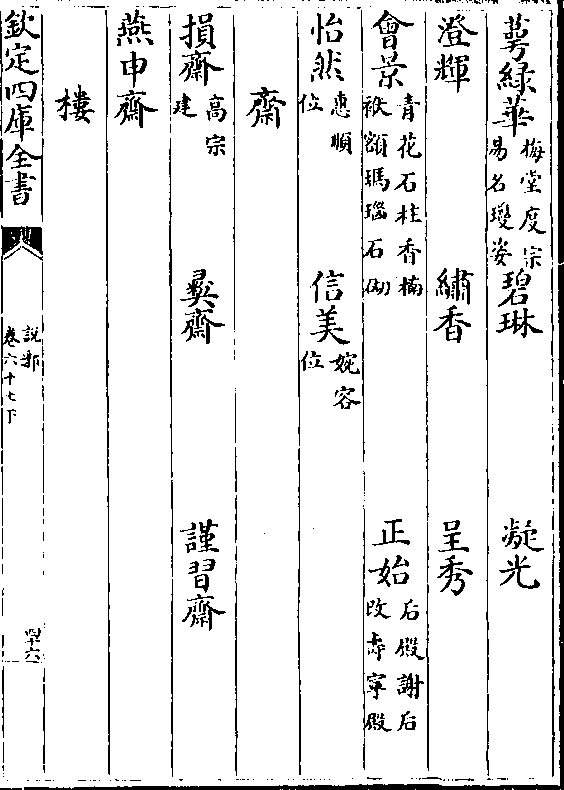 萼緑華梅堂度宗易名瓊姿 碧琳 凝光
澄輝 繡香 呈秀
會景青花石柱香楠袱額瑪瑙石砌 正始后殿謝后改壽寧殿
怡然惠順位 信美婉容位
齋
損齋高宗建 彛齋 謹習齋
燕申齋
樓
欽定四庫全書 説郛 卷六十七下 四十六